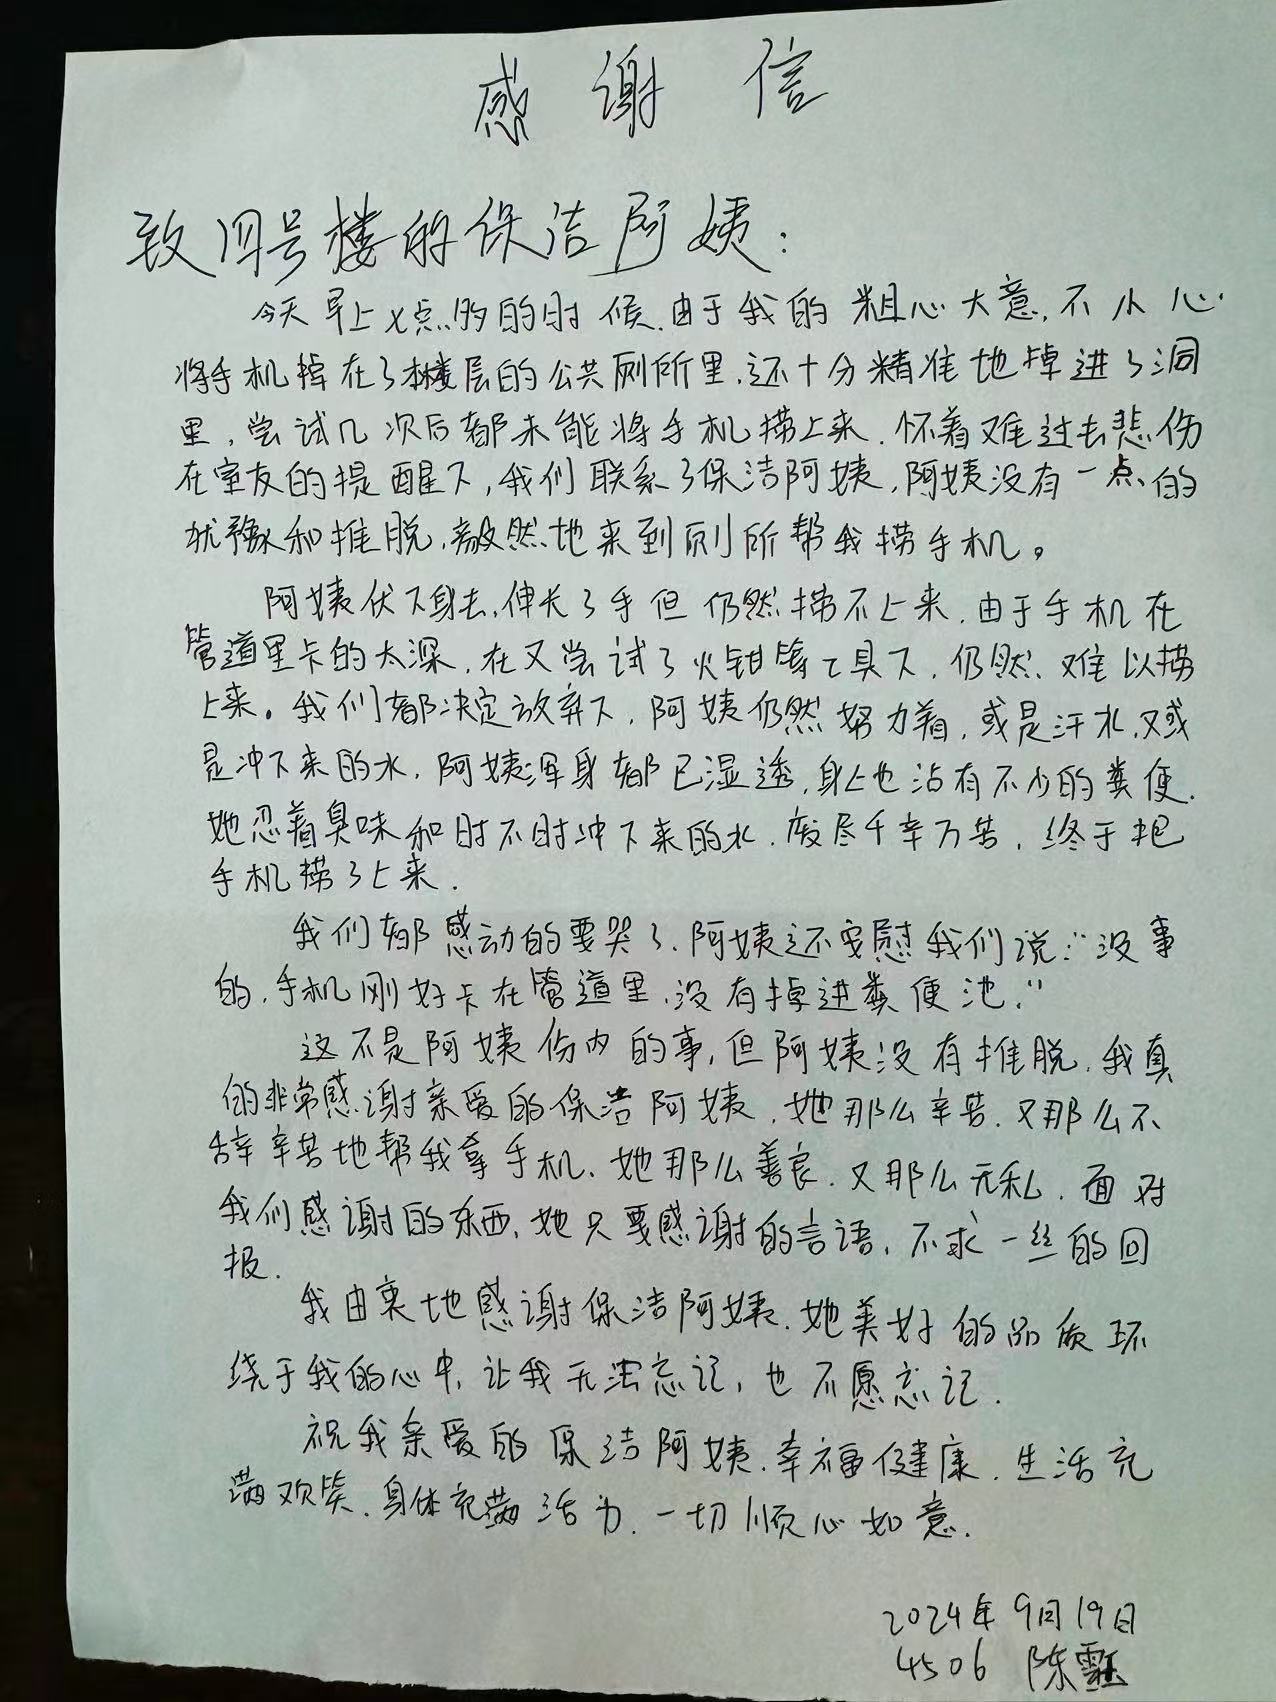 感谢信
致四号楼的保洁阿姨：
今天早上7点多的时候,由于我的粗心大意,不小心
将手机掉在了本楼层的公共厕所里,还十分精准地掉进了洞
里,尝试几次后都未能将手机捞上来,怀着难过去悲伤
在室友的提醒下,我们联系了保洁阿姨,阿姨没有一点的
犹豫和推脱,毅然地来到厕所帮我捞手机。
阿姨伏下身去,伸长了手但仍然捞不上来,由于手机在
管道里卡的太深,在又尝试了火钳等工具下,仍然难以捞
上来。我们都决定放弃下,阿姨仍然努力着,或是汗水,又或
是冲下来的水,阿姨浑身都已湿透,身上也沾有不少的粪便.
她忍着臭味和时不时冲下来的水,废尽千辛万苦,终于把
手机捞了上来.
我们都感动的要哭了,阿姨还安慰我们说:“没事
的,手机刚好卡在管道里,没有掉进粪便池.”
这不是阿姨份内的事,但阿姨没有推脱,我真
的非常感谢亲爱的保洁阿姨,她那么辛苦,又那么不
辞辛苦地帮我拿手机,她那么善良,又那么无私,面对
我们感谢的东西,她只要感谢的言语,不求一丝的回
报.
我由衷地感谢保洁阿姨,她美好的品质环
绕于我的心中,让我无法忘记,也不愿忘记.
祝我亲爱的保洁阿姨,幸福健康,生活充
满欢笑,身体充满活力,一切顺心如意.
2024年9月19日
4506 陈